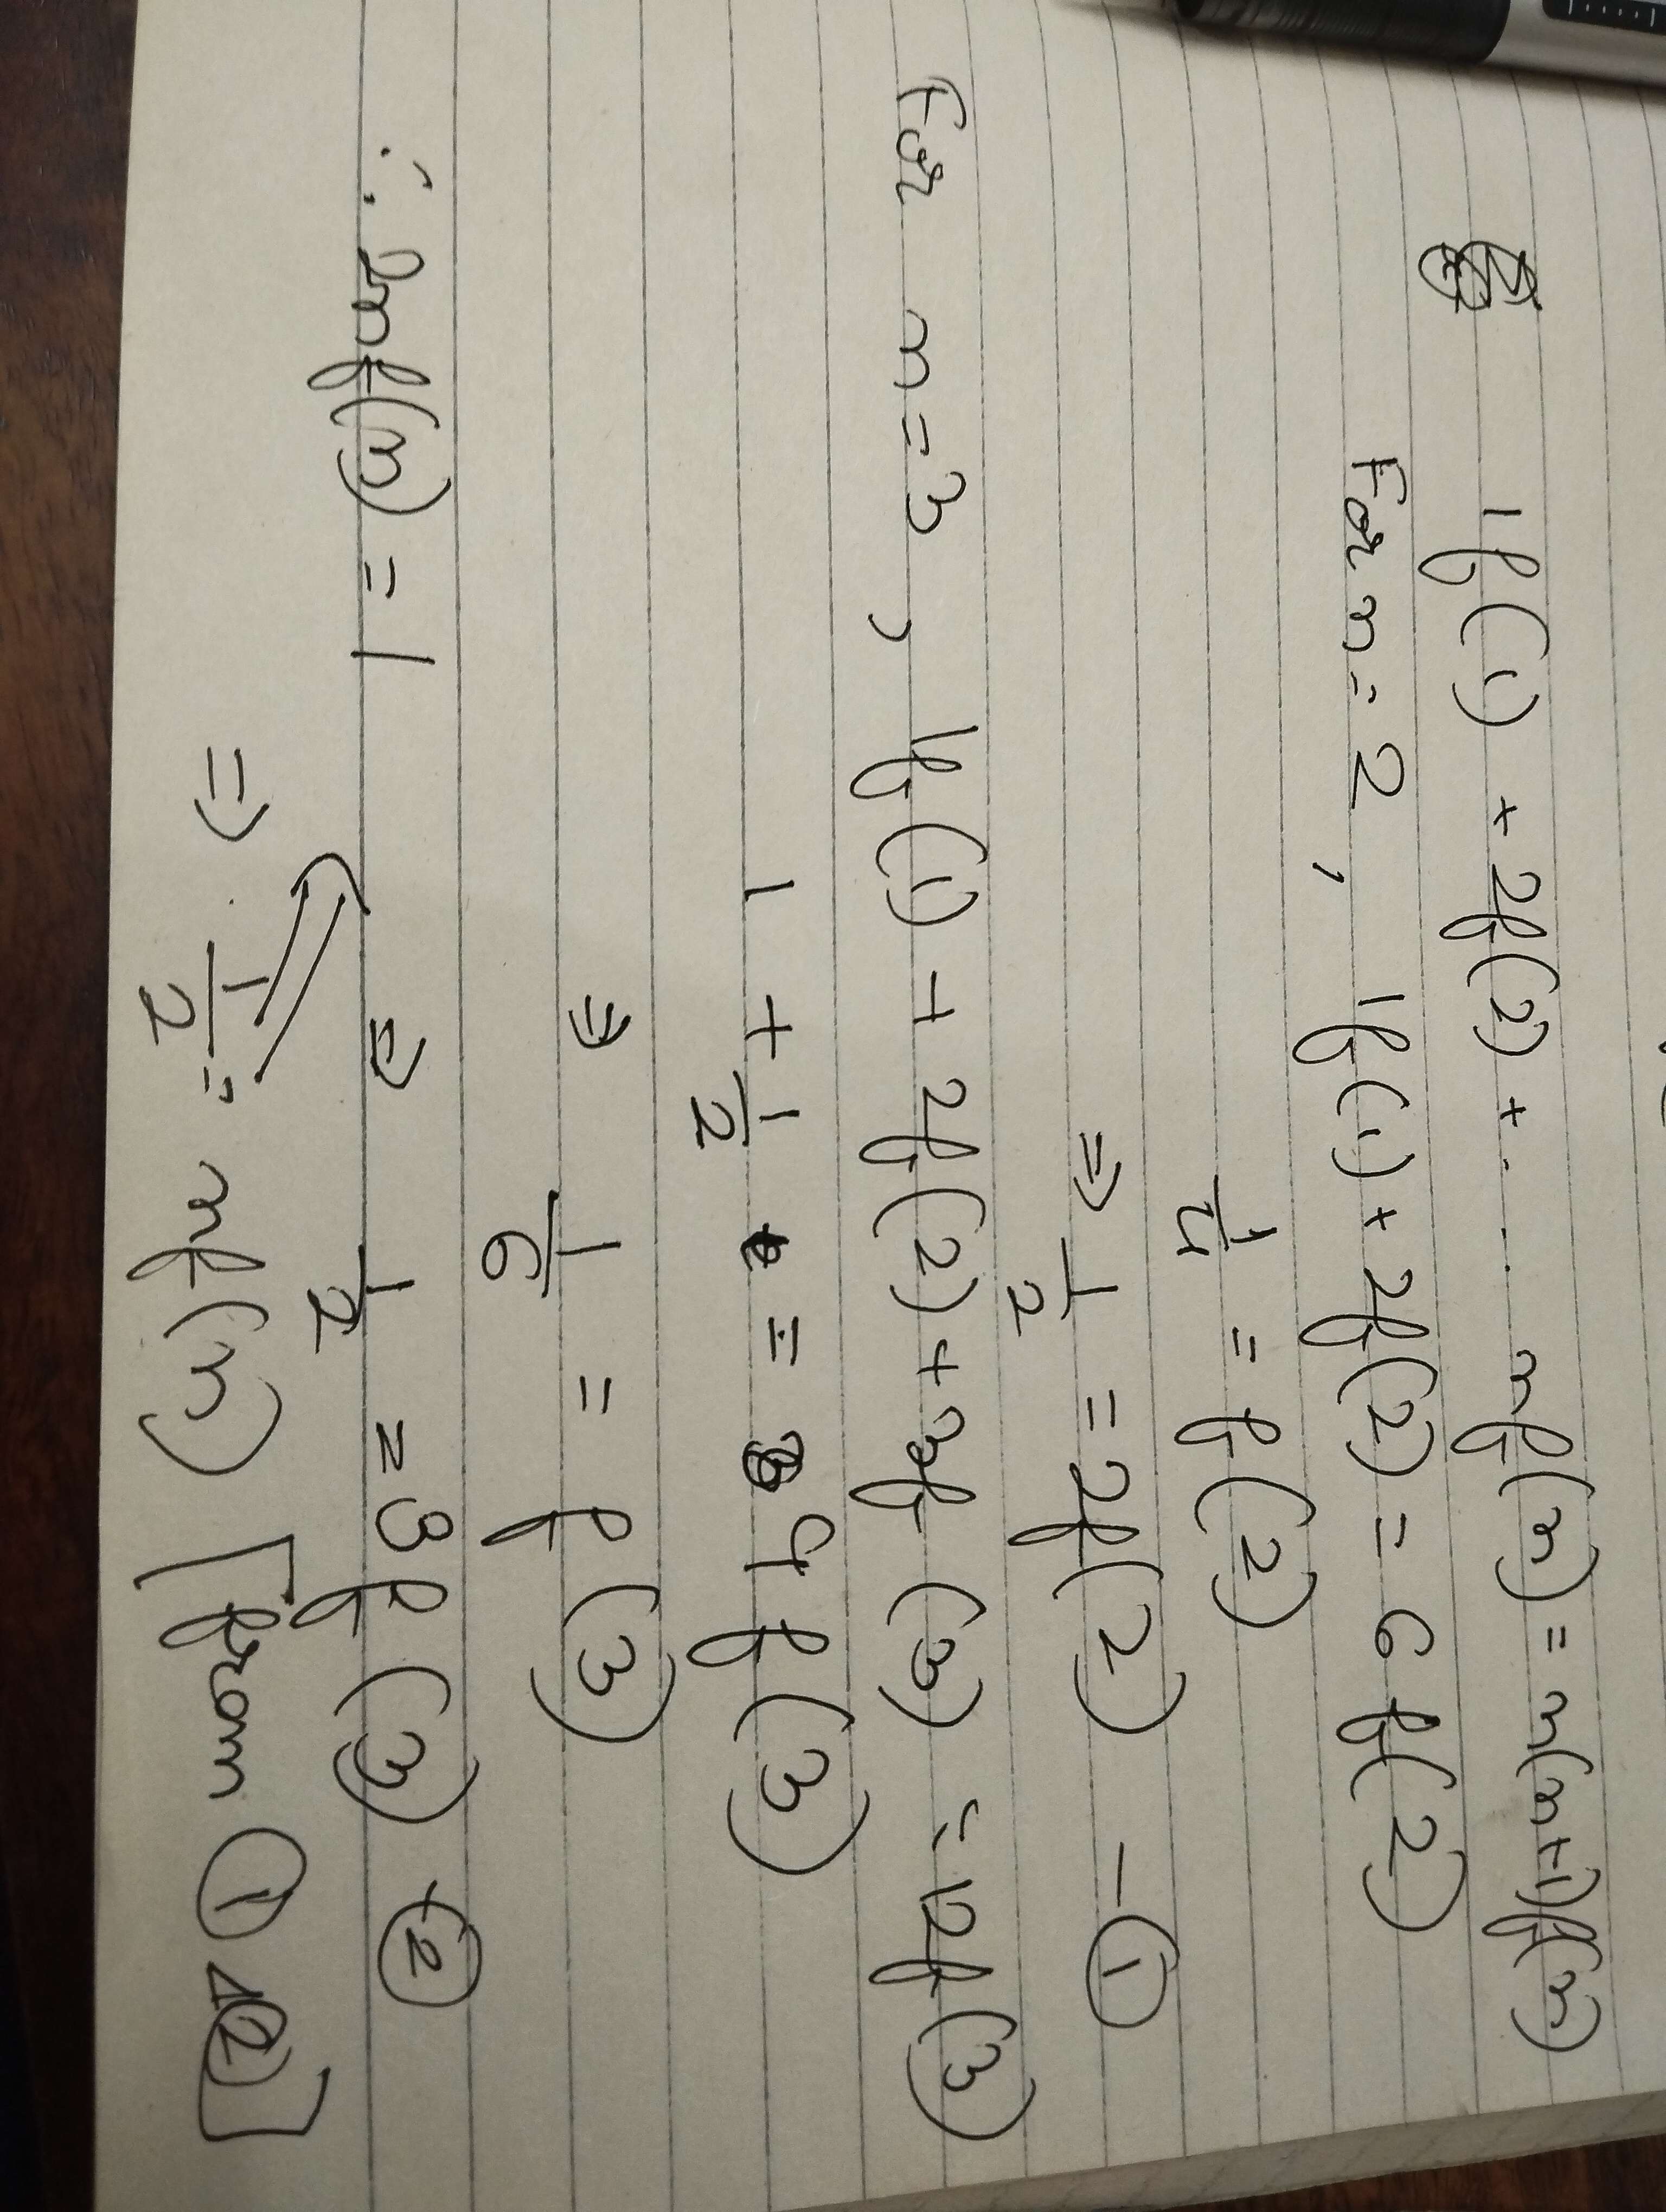 1f(1) + 2f(2) + . . . . nf(n) = n(n+1)f(n)
For n = 2 , 1f(1) + 2f(2) = 6 f(2)
1/4 = f(2)
⇒ 1/2 = 2f(2) — ①
For n = 3 , 1f(1) + 2f(2) + 3f(3) = 12f(3)
1 + 1/2 = 9 f(3)
⇒ 1/6 = f(3)
⇒ 1/2 = 3f(3) - ②
⇒ 1/2 = nf(n) [from ① & ②]
∴ 2nf(n) = 1